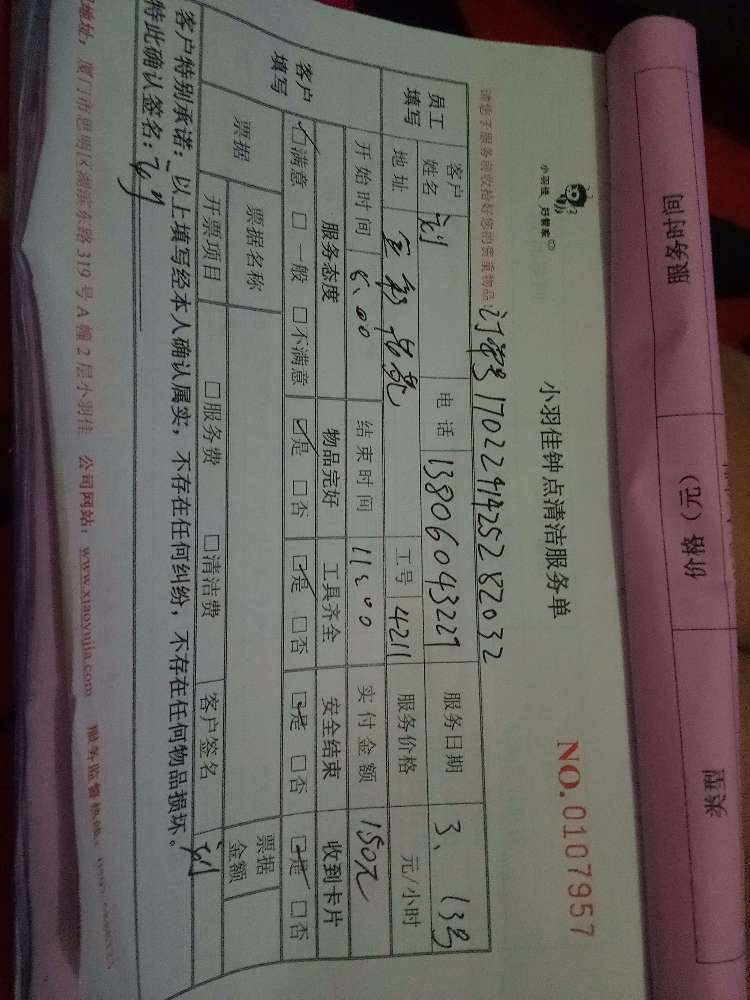 服务时间 价格（元） 类型
小羽佳 好管家
小羽佳钟点清洁服务单
NO.0107957
订单号170224142528 2032
请您于服务前收拾好您的贵重物品！
员工填写 客户姓名 刘 电话 13806043227 服务日期 3、13号
地址 工号 4211 服务价格 元/小时
客户填写 开始时间 8:00 结束时间 11:00 实付金额 150元
服务态度 物品完好 工具齐全 安全结束 收到卡片
☑满意 □一般 □不满意 ☑是 □否 ☑是 □否 ☑是 □否 ☑是 □否
票据 票据名称 票据金额
开票项目 □服务费 □清洁费 客户签名 刘
客户特别承诺：以上填写经本人确认属实，不存在任何纠纷，不存在任何物品损坏。
特此确认签名：
地址：厦门市思明区湖滨东路319号A幢2层小羽佳 公司网站：www.xiaoyujia.com 服务监督热线：